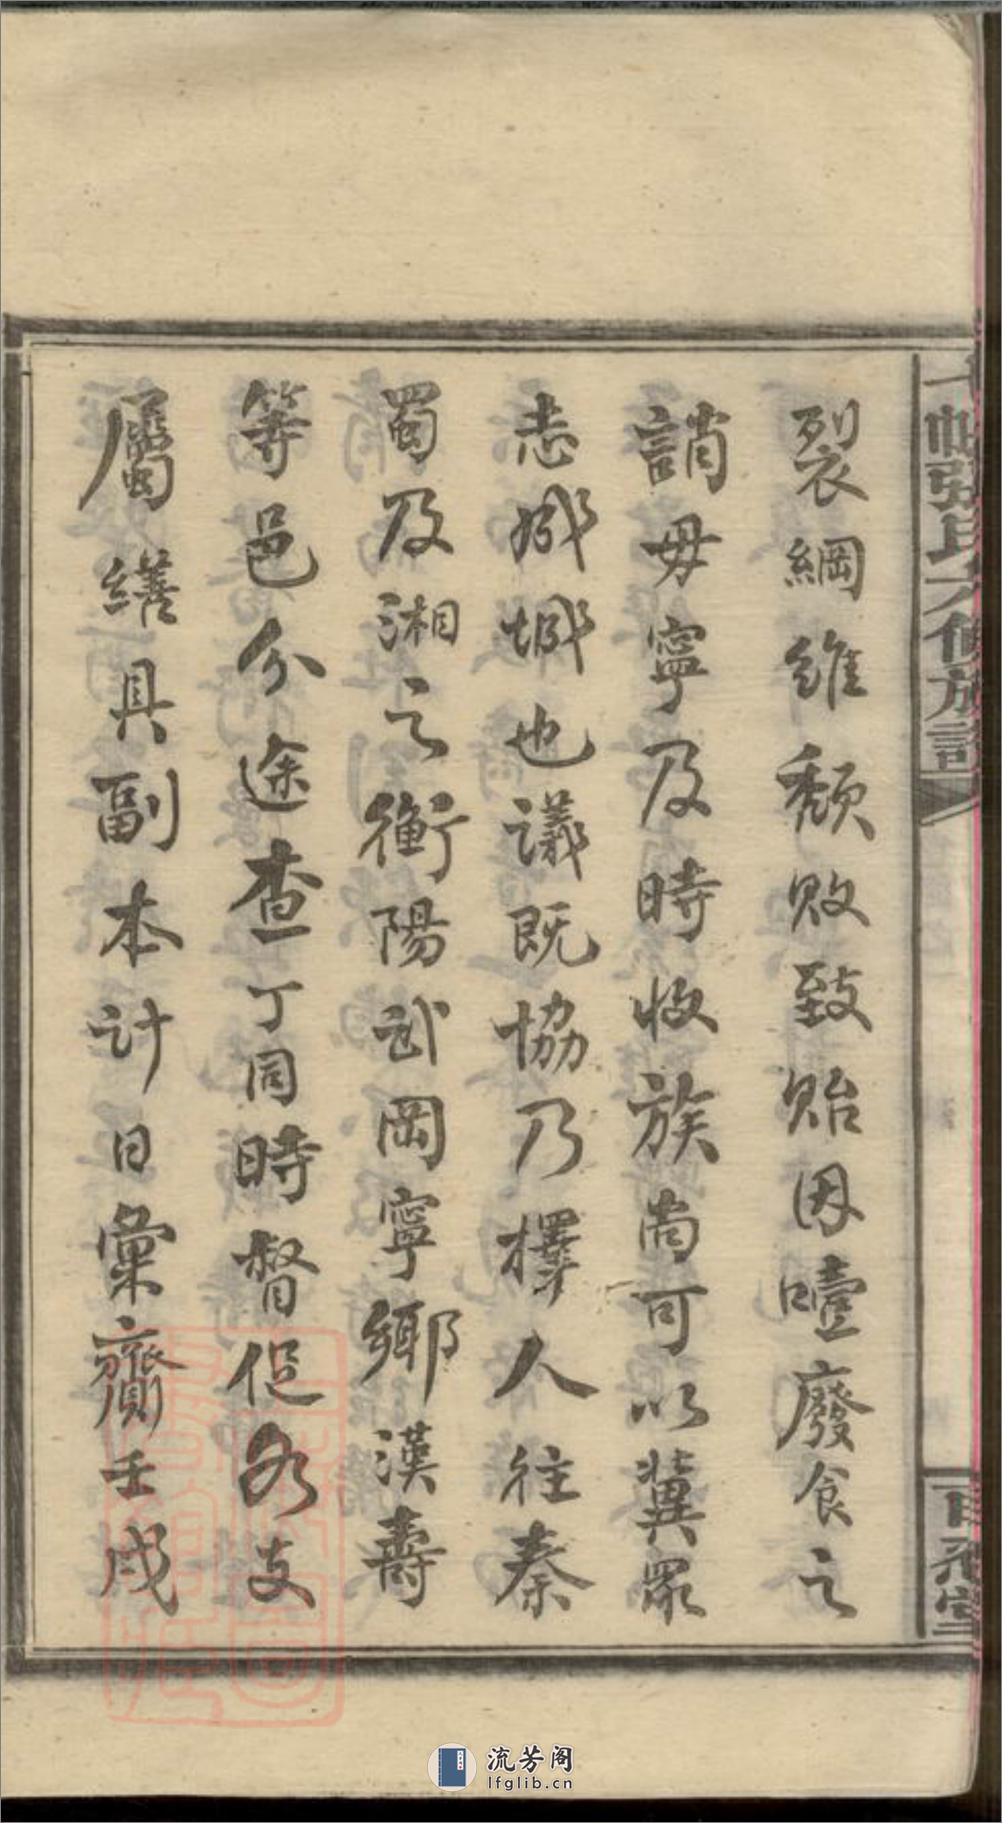 裂綱維頹敗致貽因噎廢食之
誚毋寧及時收族尚可以冀眾
志成城也議既協乃擇人往秦
蜀及湘之衡陽武岡寧鄉漢壽
等邑分途查丁同時督促各支
屬繕具副本計日彙齎壬戌
張氏六修族譜
百忍堂
流芳阁
lfglib.cn